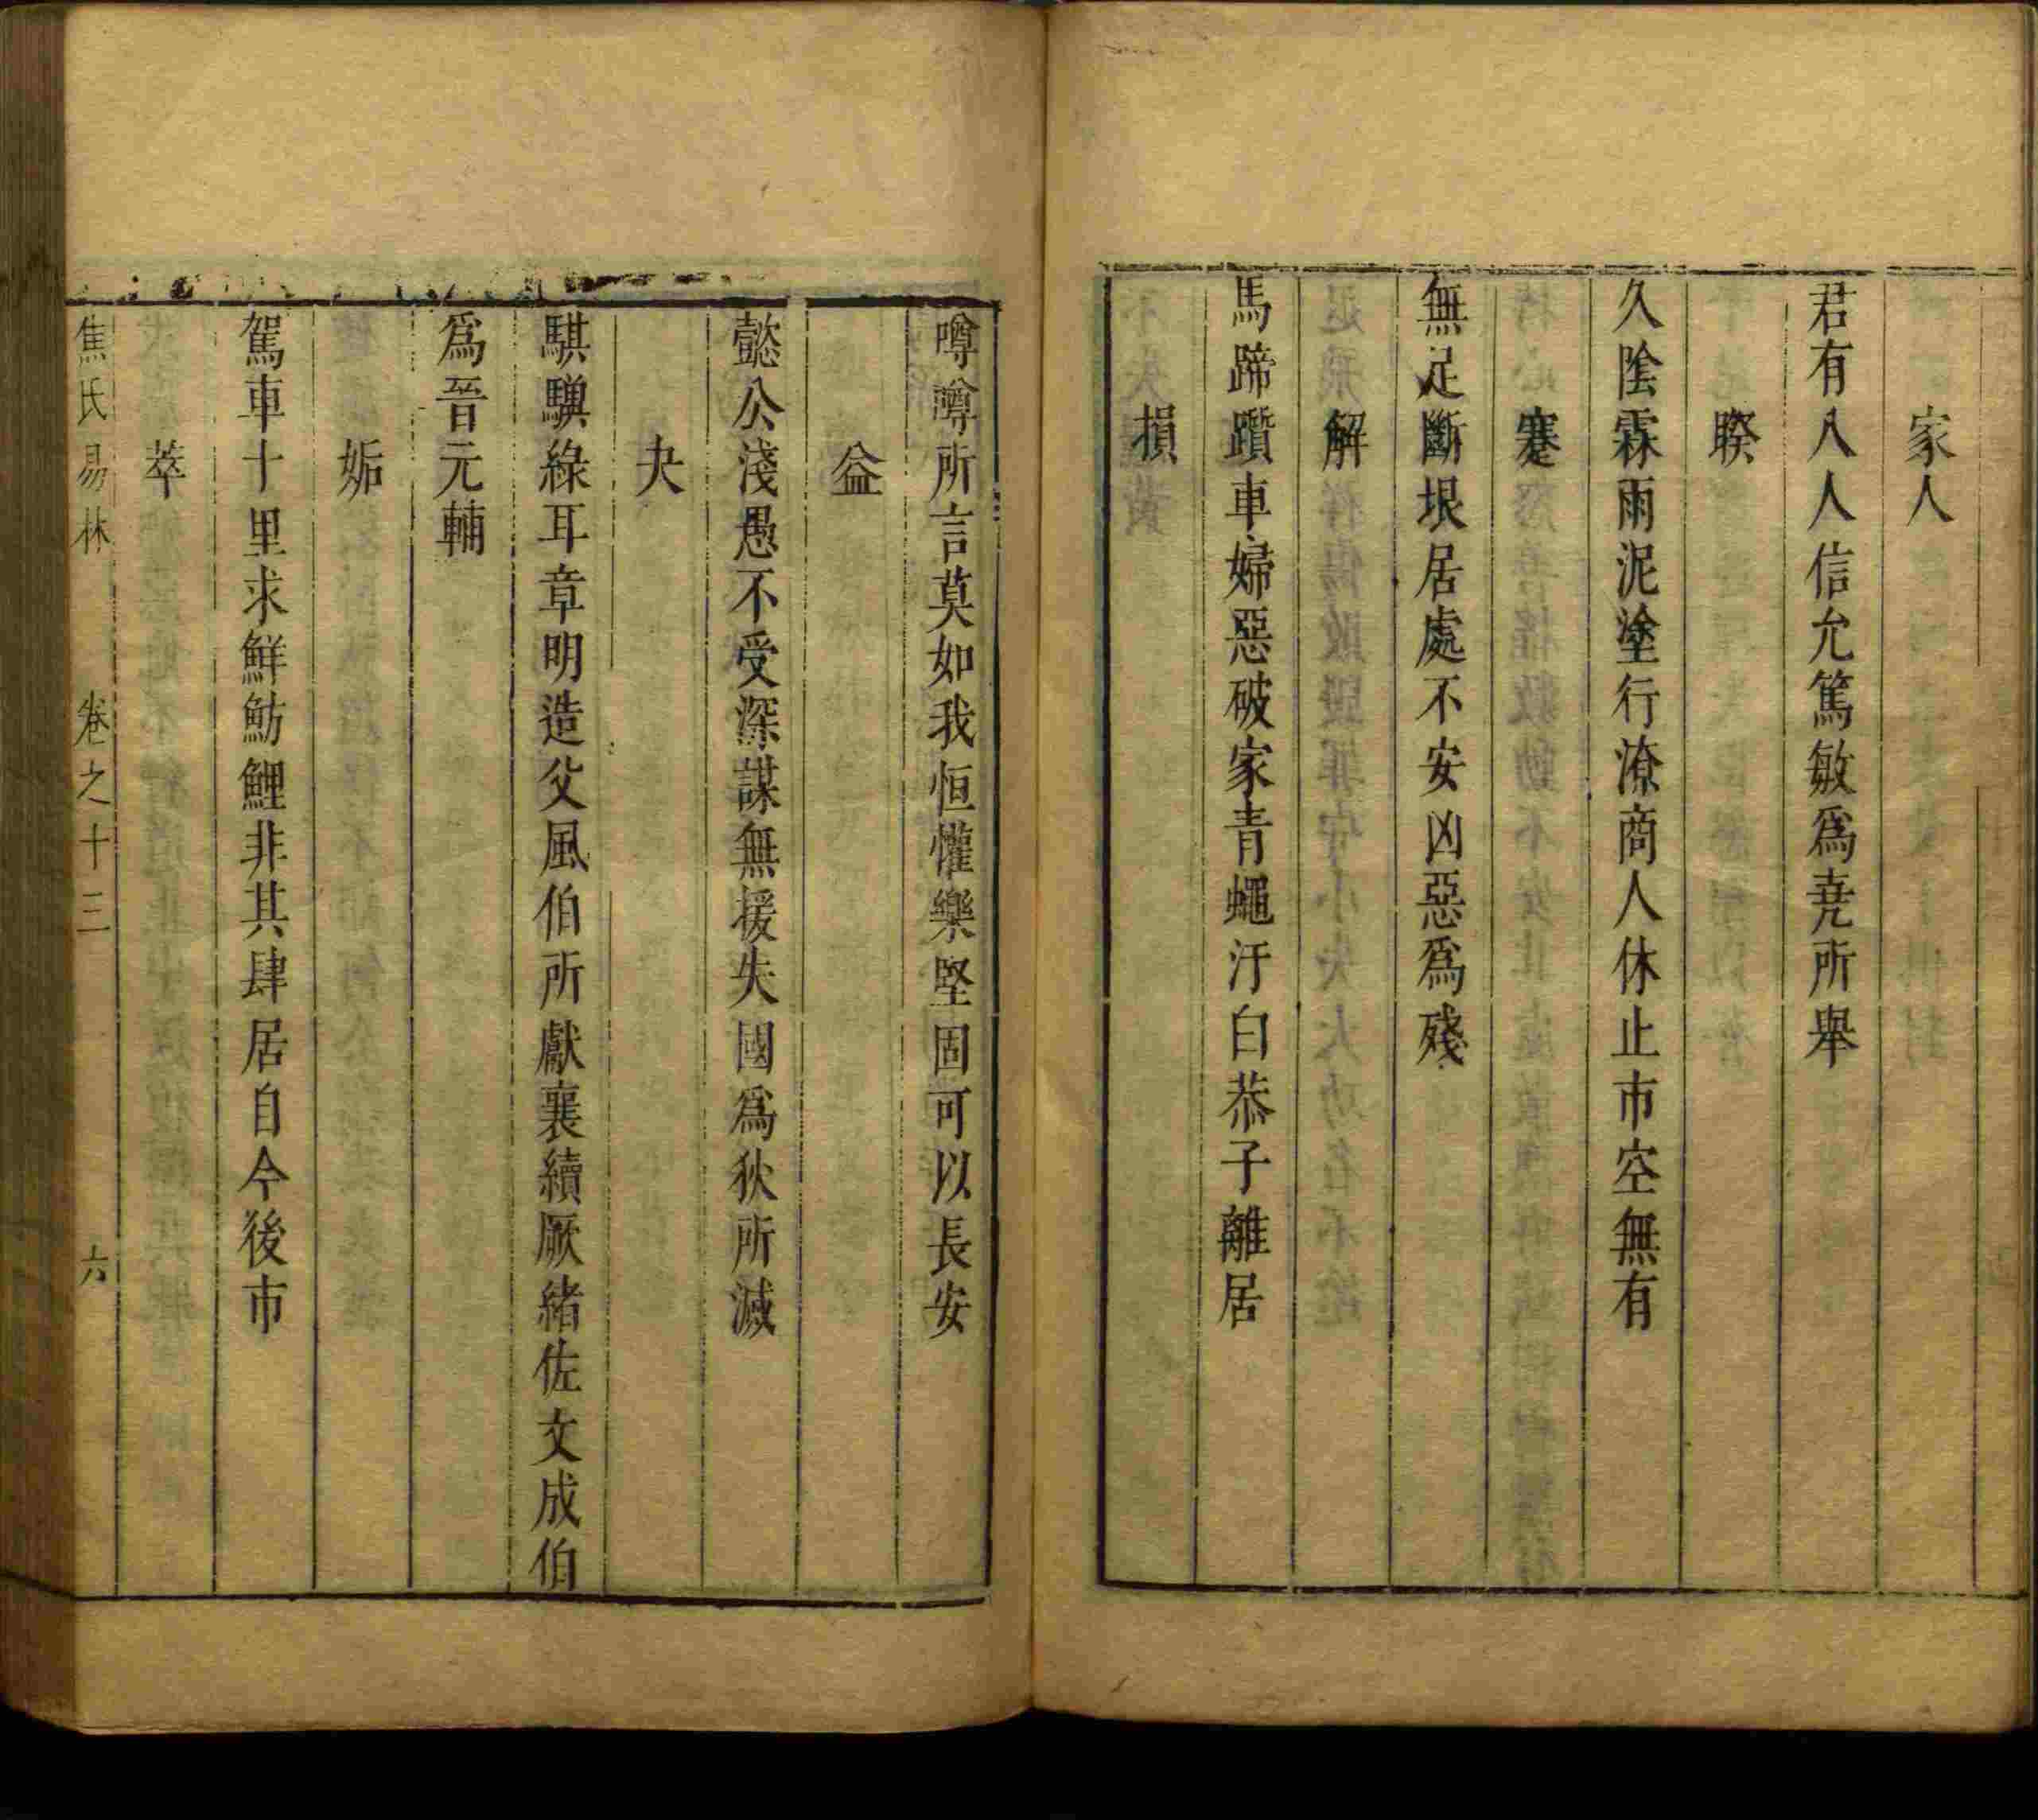 家人
君有八人信允篤敏為堯所舉
睽
久陰霖雨泥塗行潦商人休止市空無有
蹇
無足斷垠居處不安凶惡為殘
解
馬蹄躓車婦惡破家青蠅汙白恭子離居
損
噂噂所言莫如我恒懽樂堅固可以長安
益
懿公淺愚不受深謀無援失國為狄所滅
夬
騏驥綠耳章明造父風伯所獻襄續厥緒佐文成伯
為晉元輔
姤
駕車十里求鮮魴鯉非其肆居自令後市
萃
焦氏易林 卷之十三 六